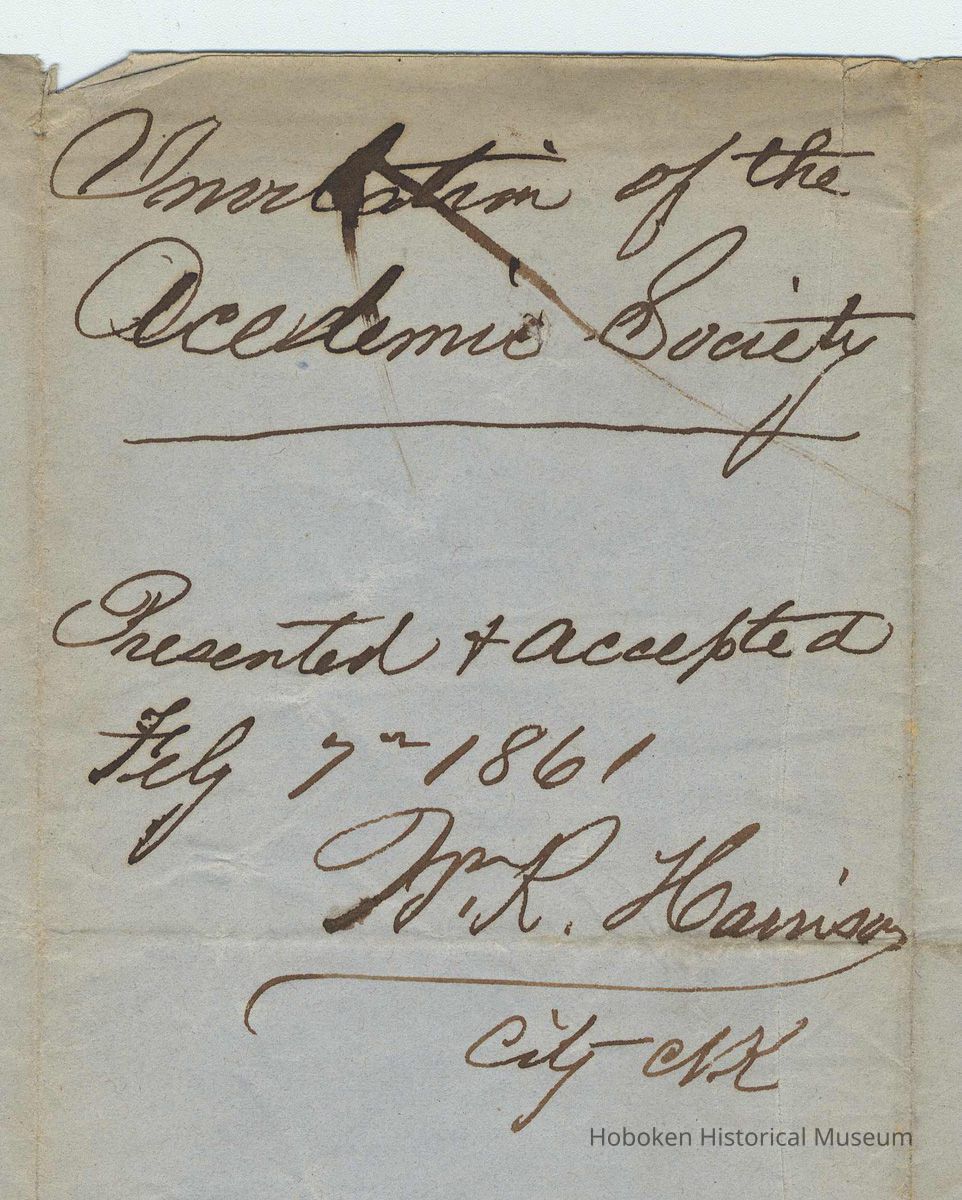 Invitation of the
Acedemic Society
Presented & accepted
Feby 7th 1861
Wm. R. Harrison
City Clk
Hoboken Historical Museum